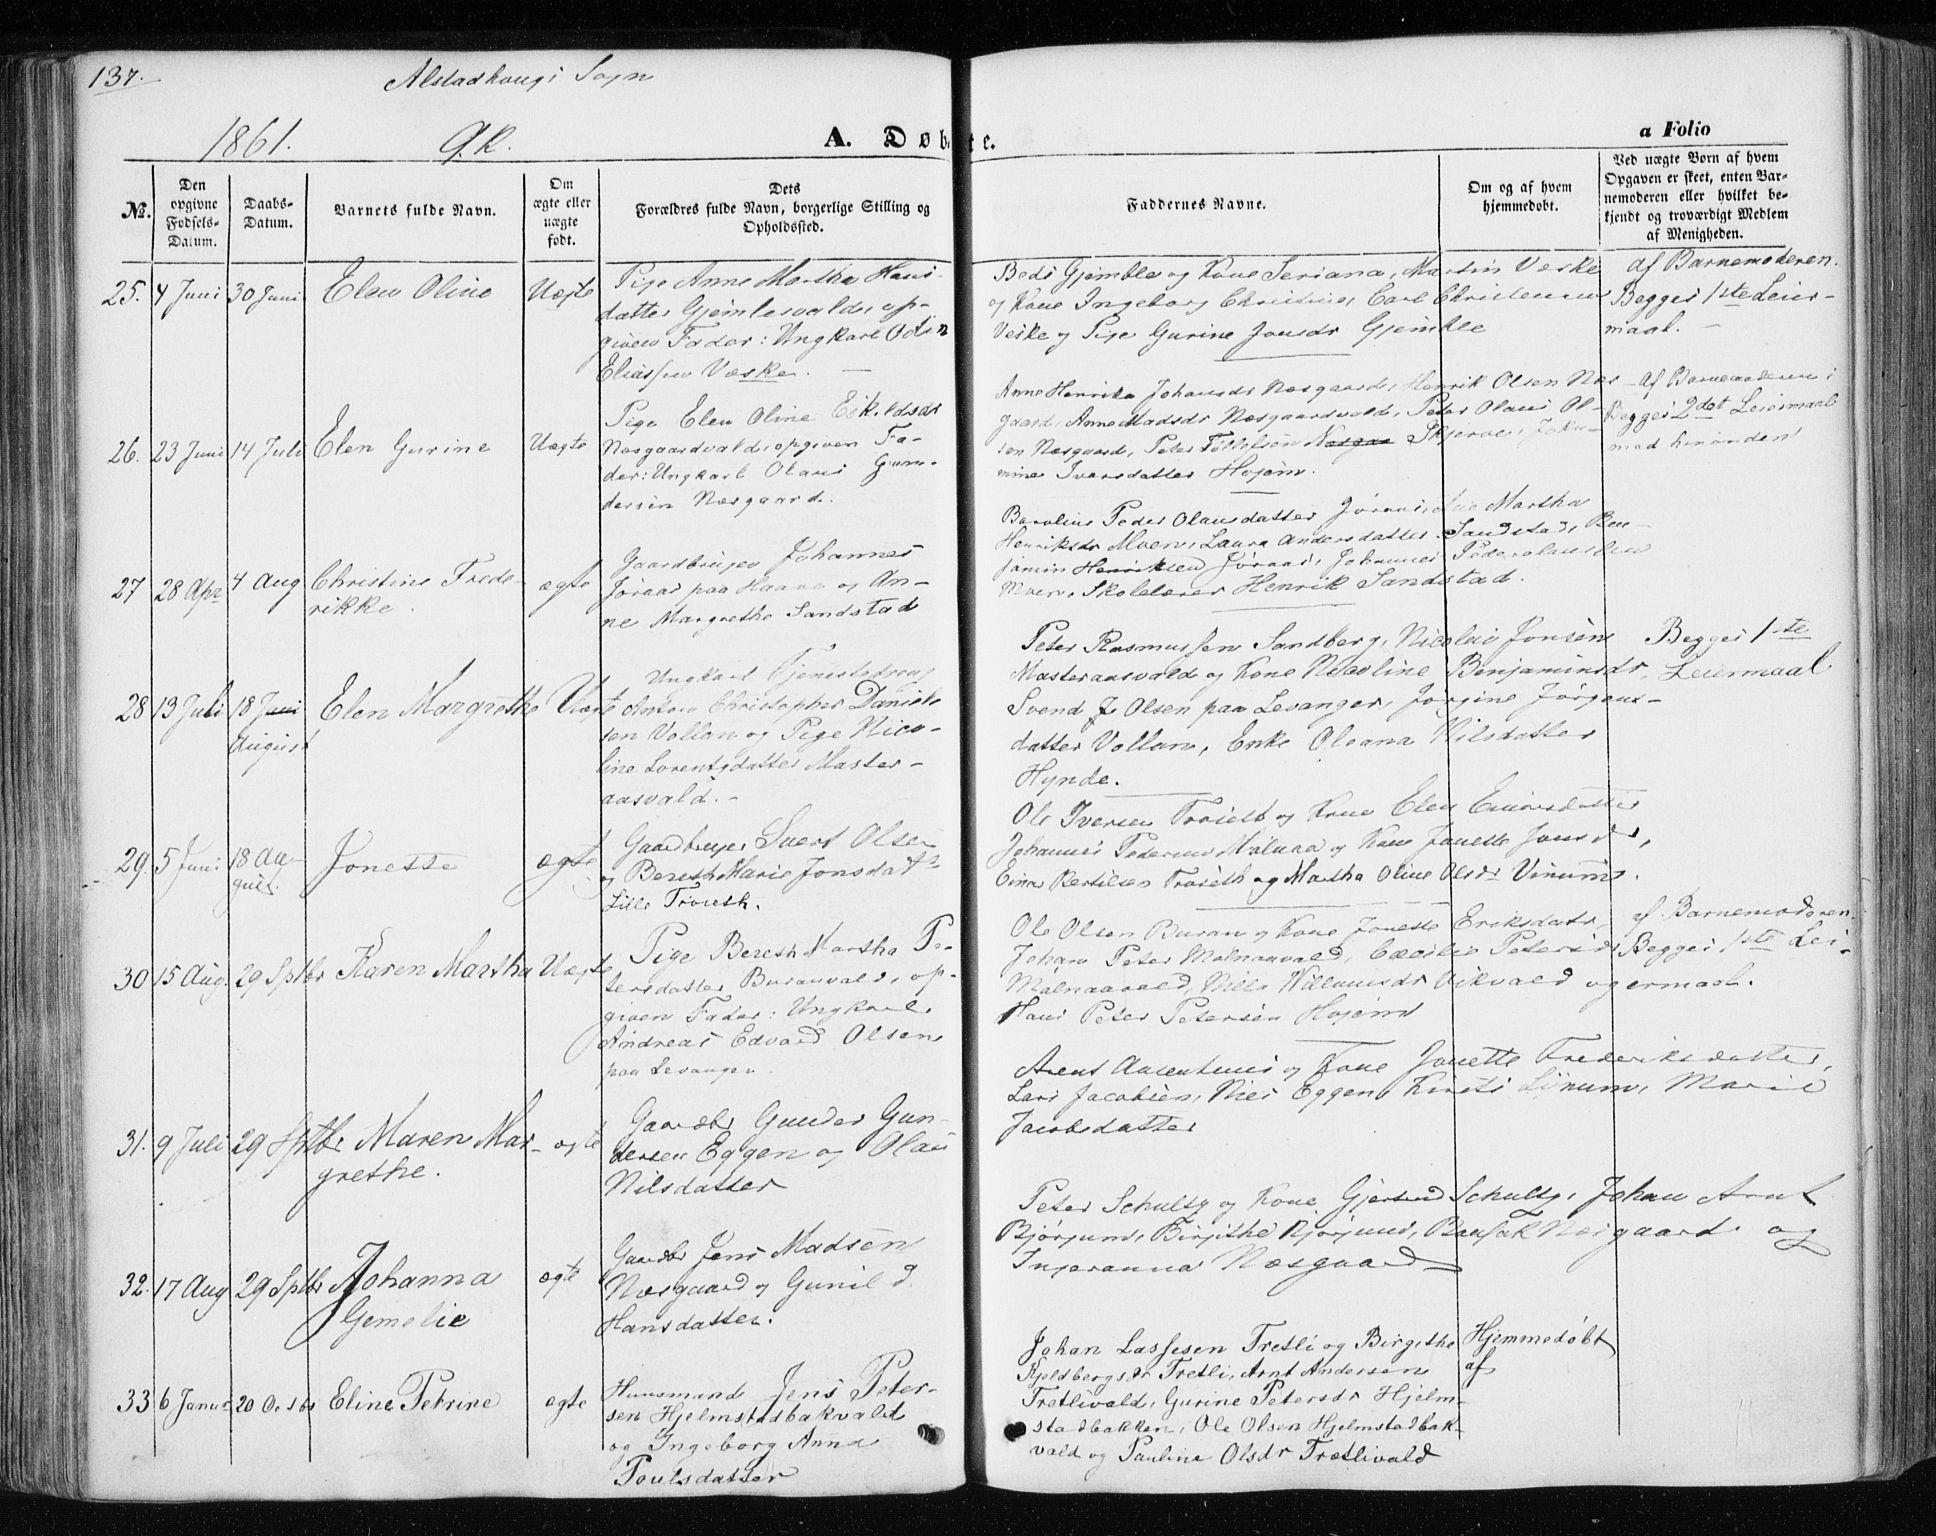 137.
Alstadhougs Sogn
1861. Q.K. A. Døbte. a Folio
№.
Den opgivne Fødsels-Datum.
Daabs-Datum.
Barnets fulde Navn.
Om ægte eller uægte født.
Dets
Forældres fulde Navn, borgerlige Stilling og Opholdssted.
Faddernes Navne.
Om og af hvem hjemmedøbt.
Ved uægte Børn af hvem
Opgaven er skeet, enten Bar-
nemoderen eller hvilket be-
kjendt og troværdigt Medlem
af Menigheden.
25. 4 Juni 30 Juni Elen Oline Uægte
Pige Anne Martha Hans-
datter Gjemlesvald, op-
given Fader: Ungkarl Odin
Eliassen Væske. —
Gjemble og Kone Seriana, Martin Væske
og Kone Ingeborg Christine, Carl Christensen
Veske og Pige Gurine Jonsdr Gjemble
af Barnemoderen.
Begges 1ste Leier-
maal. —
26. 23 Juni 14 Juli Elen Gurine Uægte
Pige Elen Oline Eskildsdr
Næsgaardvald, opgiven Fa-
der: Ungkarl Olaus Gun-
dersen Næsgaard.
Anne Henrika Johansdr Næsgaard, Henrik Olsen Næs-
gaard, Anne Madsdr Næsgaardvald, Peter Olaus Ol-
sen Næsgaard, Peter Skjerve, Joha-
mine Iversdatter Hojem.
af Barnemoderen
Begges 2det Leiermaal
med hinanden
27 28 Apr 4 Aug Christine Frede-
rikke. ægte
Gaardbruger Johannes
Jøraas paa Haave og An-
ne Margrethe Sandstad
Peder Olausdatter Jøraas, Martha
Henriksdr Moen, Laura Andersdatter Sandstad, Ben-
jamin Henriksen Jøraas, Johannes Pederolaussen
Moen, Skolelærer Henrik Sandstad.
28 13 Juli 18 Juni
August Elen Margrethe Uægte
Ungkarl Tjenestedreng
Anton Christopher Daniel-
sen Vollan og Pige Nico-
line Lorentzdatter Master-
aasvald. -
Peter Rasmussen Sandberg, Nicolai Jonsen
Masteraasvald og Kone Nicoline Benjaminsdr,
Svend J. Olsen paa Levanger, Jorgine Jørgens-
datter Vollan, Enke Oleana Nilsdatter
Hynde.
Begges 1ste
Leiermaal
29. 5 Juni 18 Au-
gust. Jonette ægte
Gaardbruger Sivert Olsen
og Bereth Marie Jonsdatr
Lille Trøseth.
Ole Iversen Trøseth og Kone Elen Einarsdatter
Johannes Pedersen Molnaa og Kone Jonette Jonsdr,
Einar Bertilsen Trøseth og Martha Oline Olsdr Vinum.
30 15 Aug. 29 Sptbr Karen Martha Uægte
Pige Bereth Martha Pe-
tersdatter Buranvald, op-
given Fader: Ungkarl
Andreas Edvard Olsen
paa Levanger.
Ole Olsen Buran og Kone Jonette Eriksdatr,
Johan Peter Molnaavald, Cæcilie Petersdr
Molnaavald, Nilla Villumsdr Vikvald og
Hans Peter Petersen Hojem
af Barnemoderen.
Begges 1ste Lei-
ermaal.
31. 9 Juli 29 Sptbr Maren Mar-
grethe. ægte
Gaardbr Gunder Gun-
dersen Eggen og Olau
Nilsdatter
Arent Augentius og Kone Jonette Frederiksdatter,
Lars Jacobsen, Eggen, Lynum, Marie
Jacobsdatter
32. 17 Aug 29 Sptbr Johanna
Gemelie ægte
Gaardbr Jens Madsen
Næsgaard og Gunild
Hansdatter.
Peter Schultz og Kone Gjertrud Schultz, Johan Arnt
Bjørjum, Birgithe Bjørjum, Næsgaard og
Ingeranna Næsgaard
33 6 Januar 20 Octbr Eline Petrine ægte
Huusmand Jens Peter-
sen Hjelmstadbakvald
og Ingeborg Anna
Poulsdatter
Johan Lassesen Tretli og Birgithe
Kjeldbergsdr Tretli, Arnt Andersen
Tretlivald, Gurine Petersdr Hjelm-
stadbakken, Ole Olsen Hjelmstadbak-
vald og Pauline Olsdr Tretlivald
Hjemmedøbt
af